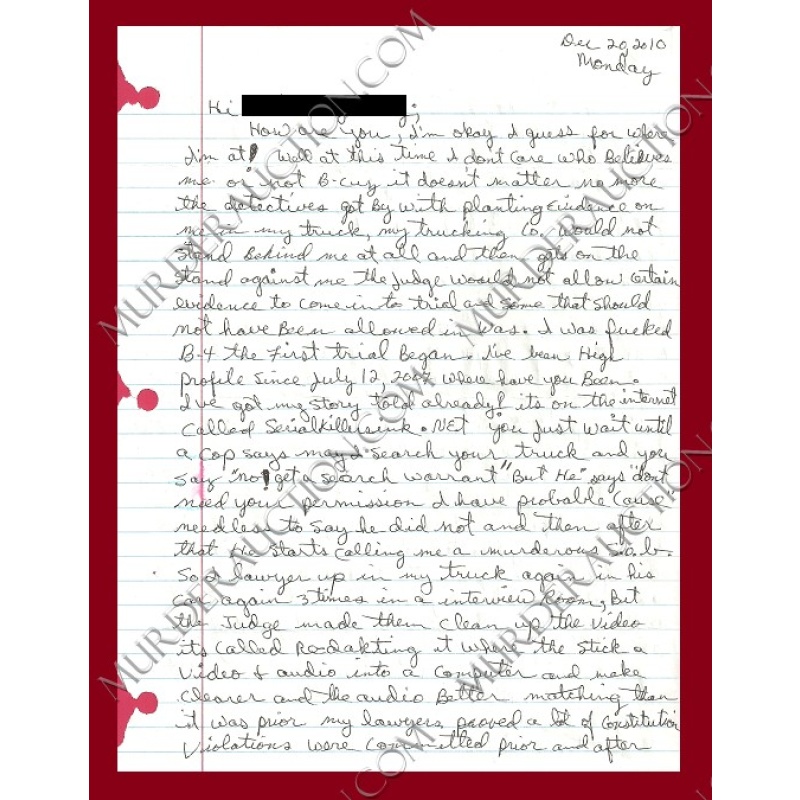 Dec 20, 2010
Monday
Hi ;
How are you, I'm okay I guess for where
I'm at! Well at this time I dont care who Believes
me or not B-cuz it doesn't matter no more
the detectives got By with planting Evidence on
me in my truck, my trucking Co. would not
stand Behind me at all and then gets on the
stand against me the Judge would not allow certain
evidence to come in to trial and some that should
not have Been allowed in was. I was fucked
B-4 the First trial Began. I've been High
profile since July 12, 2007 where have you Been.
I've got my story told already! its on the internet
called Serialkillersink.NET you just wait until
a Cop says may I search your truck and you
say "no! get a search warrant" But He says "dont
need your permission I have probable cause
needless to say he did not and then after
that He starts calling me a murderous S.o.b.
So I Lawyer up in my truck again in his
car again 3 times in a interview room, But
the Judge made them clean up the video
its called Ro-dakting it where the stick a
video & audio into a Computer and make
clearer and the audio Better matching than
it was prior my lawyers proved a lot of Constitution
Violations were committed prior and after
MURDERAUCTION.COM